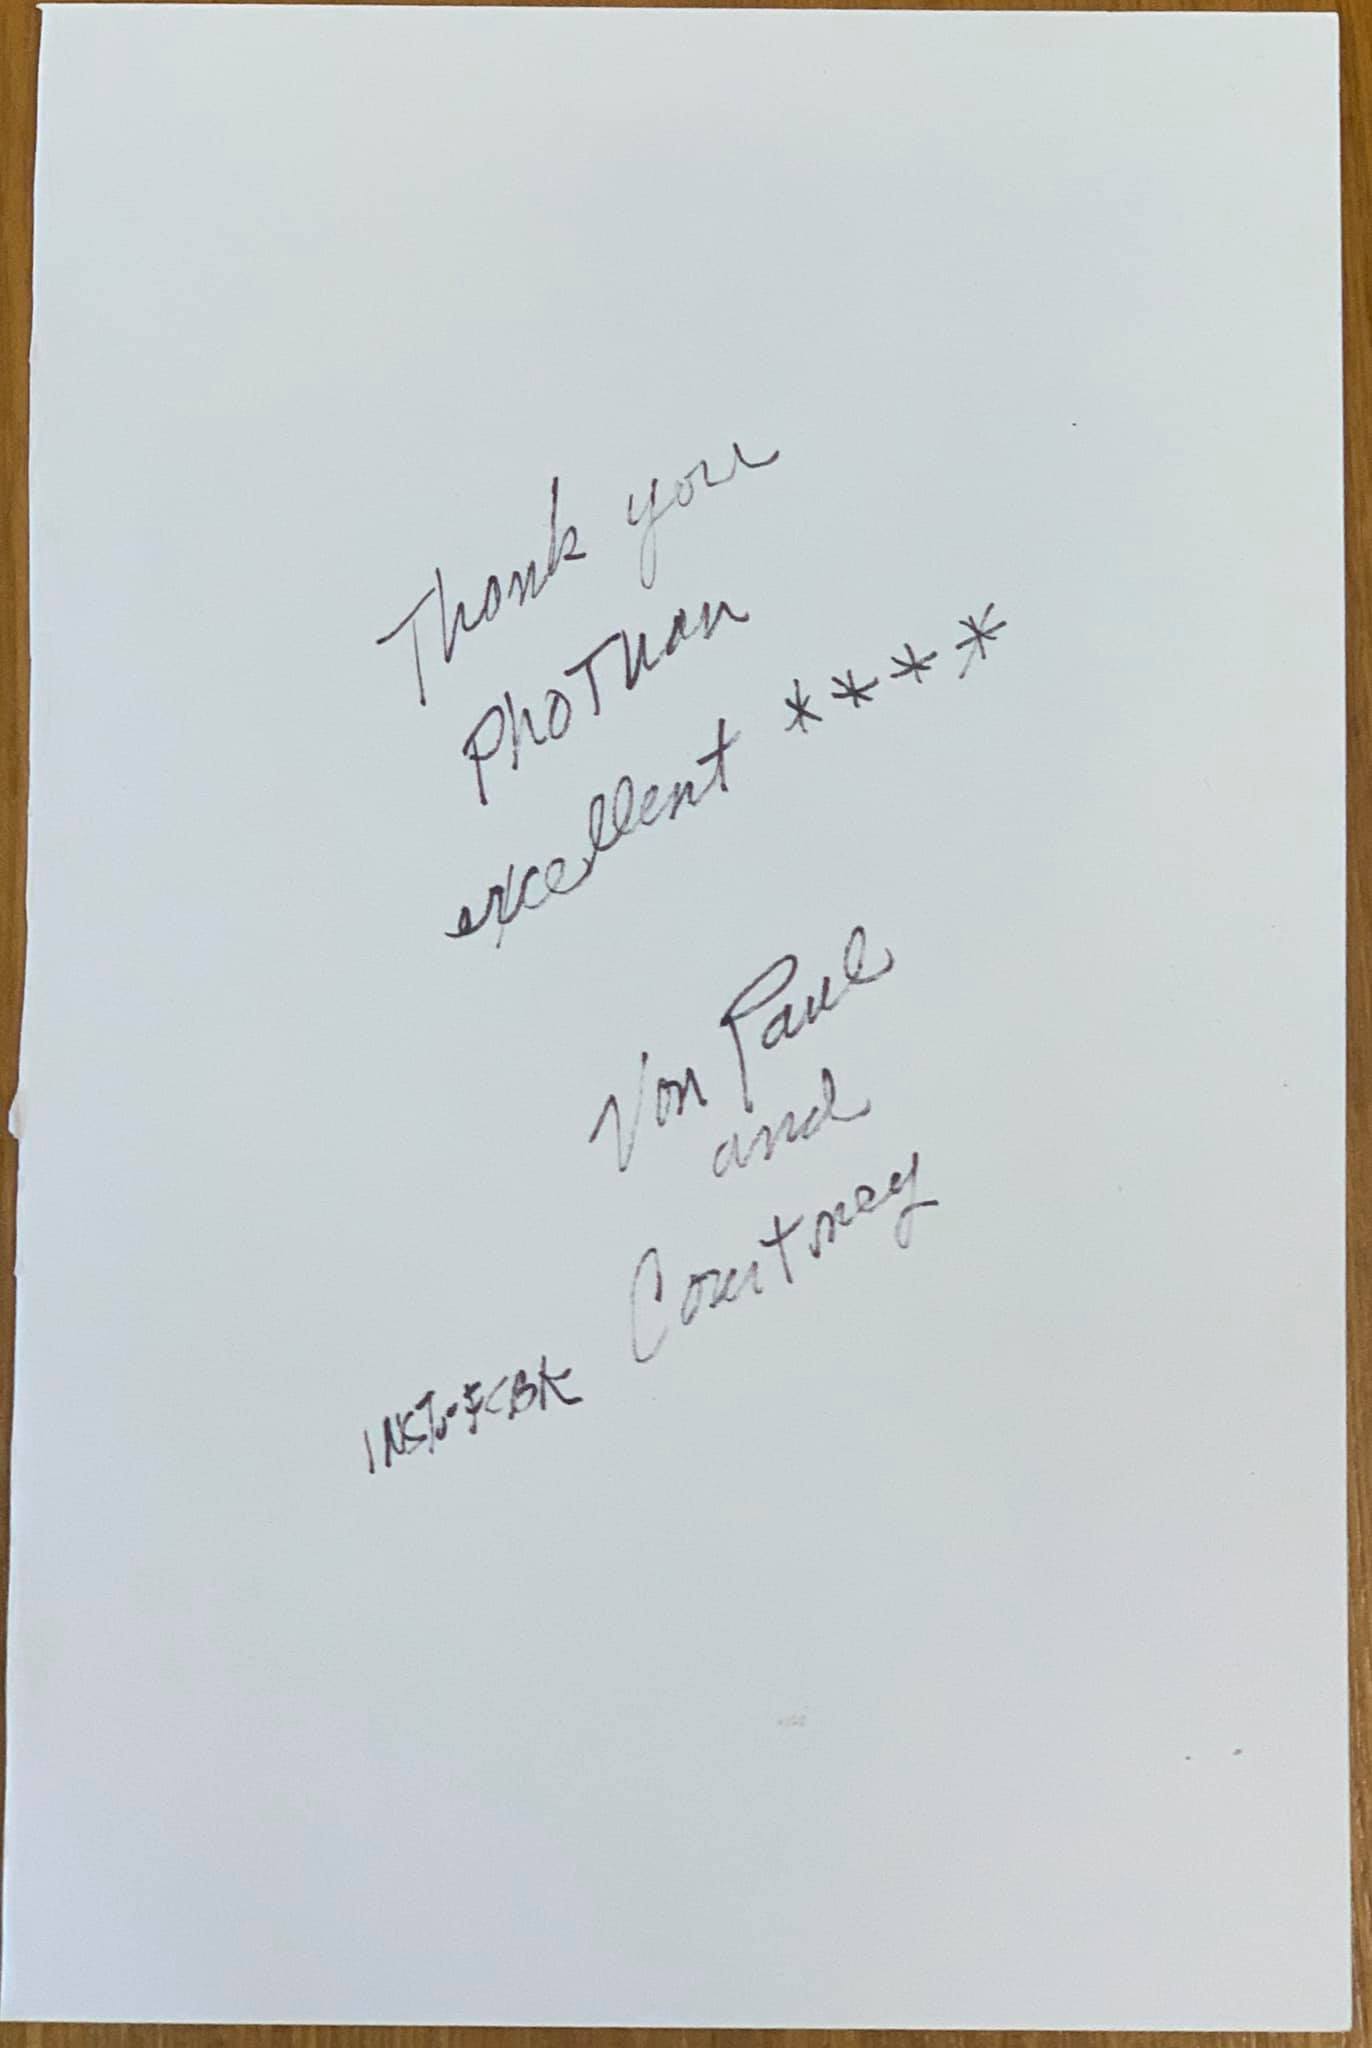 Thank you
PhoTuan
excellent ****
Von Paul
and
Courtney